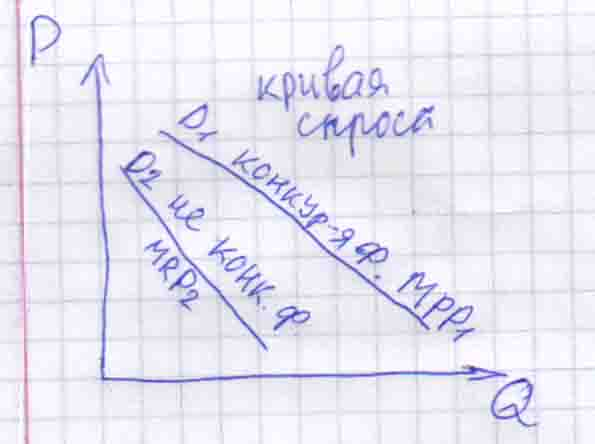 P
кривая
спроса
D1 конкур-я ф. МРР1
D2 не конк. ф
MRP2
Q